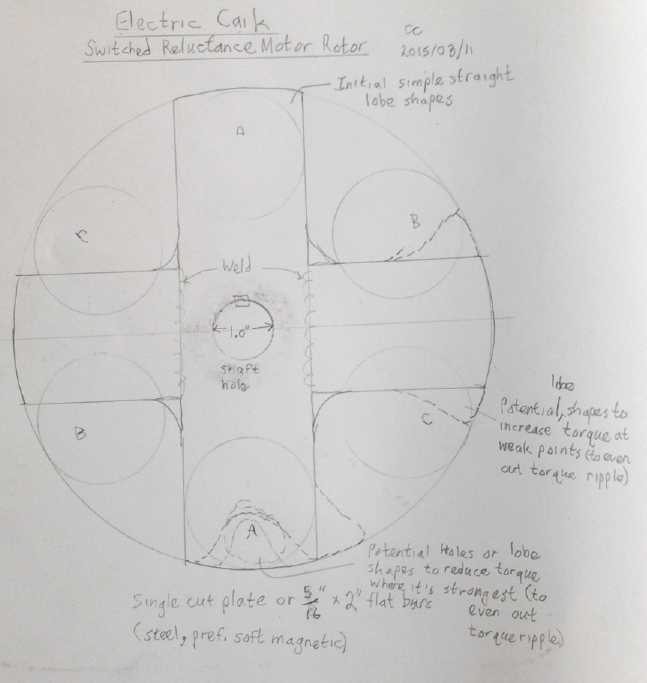 Electric Caik
CC
Switched Reluctance Motor Rotor
2015/03/11
Initial simple straight
lobe shapes
A
C
B
Weld
1.0"
shaft
hole
B
C
lobe
Potential, shapes to
increase torque at
weak points (to even
out torque ripple)
A
Potential Holes or lobe
shapes to reduce torque
where it's strongest (to
even out
torque ripple)
Single cut plate or 5/16" x 2" flat bars
(steel, pref. soft magnetic)